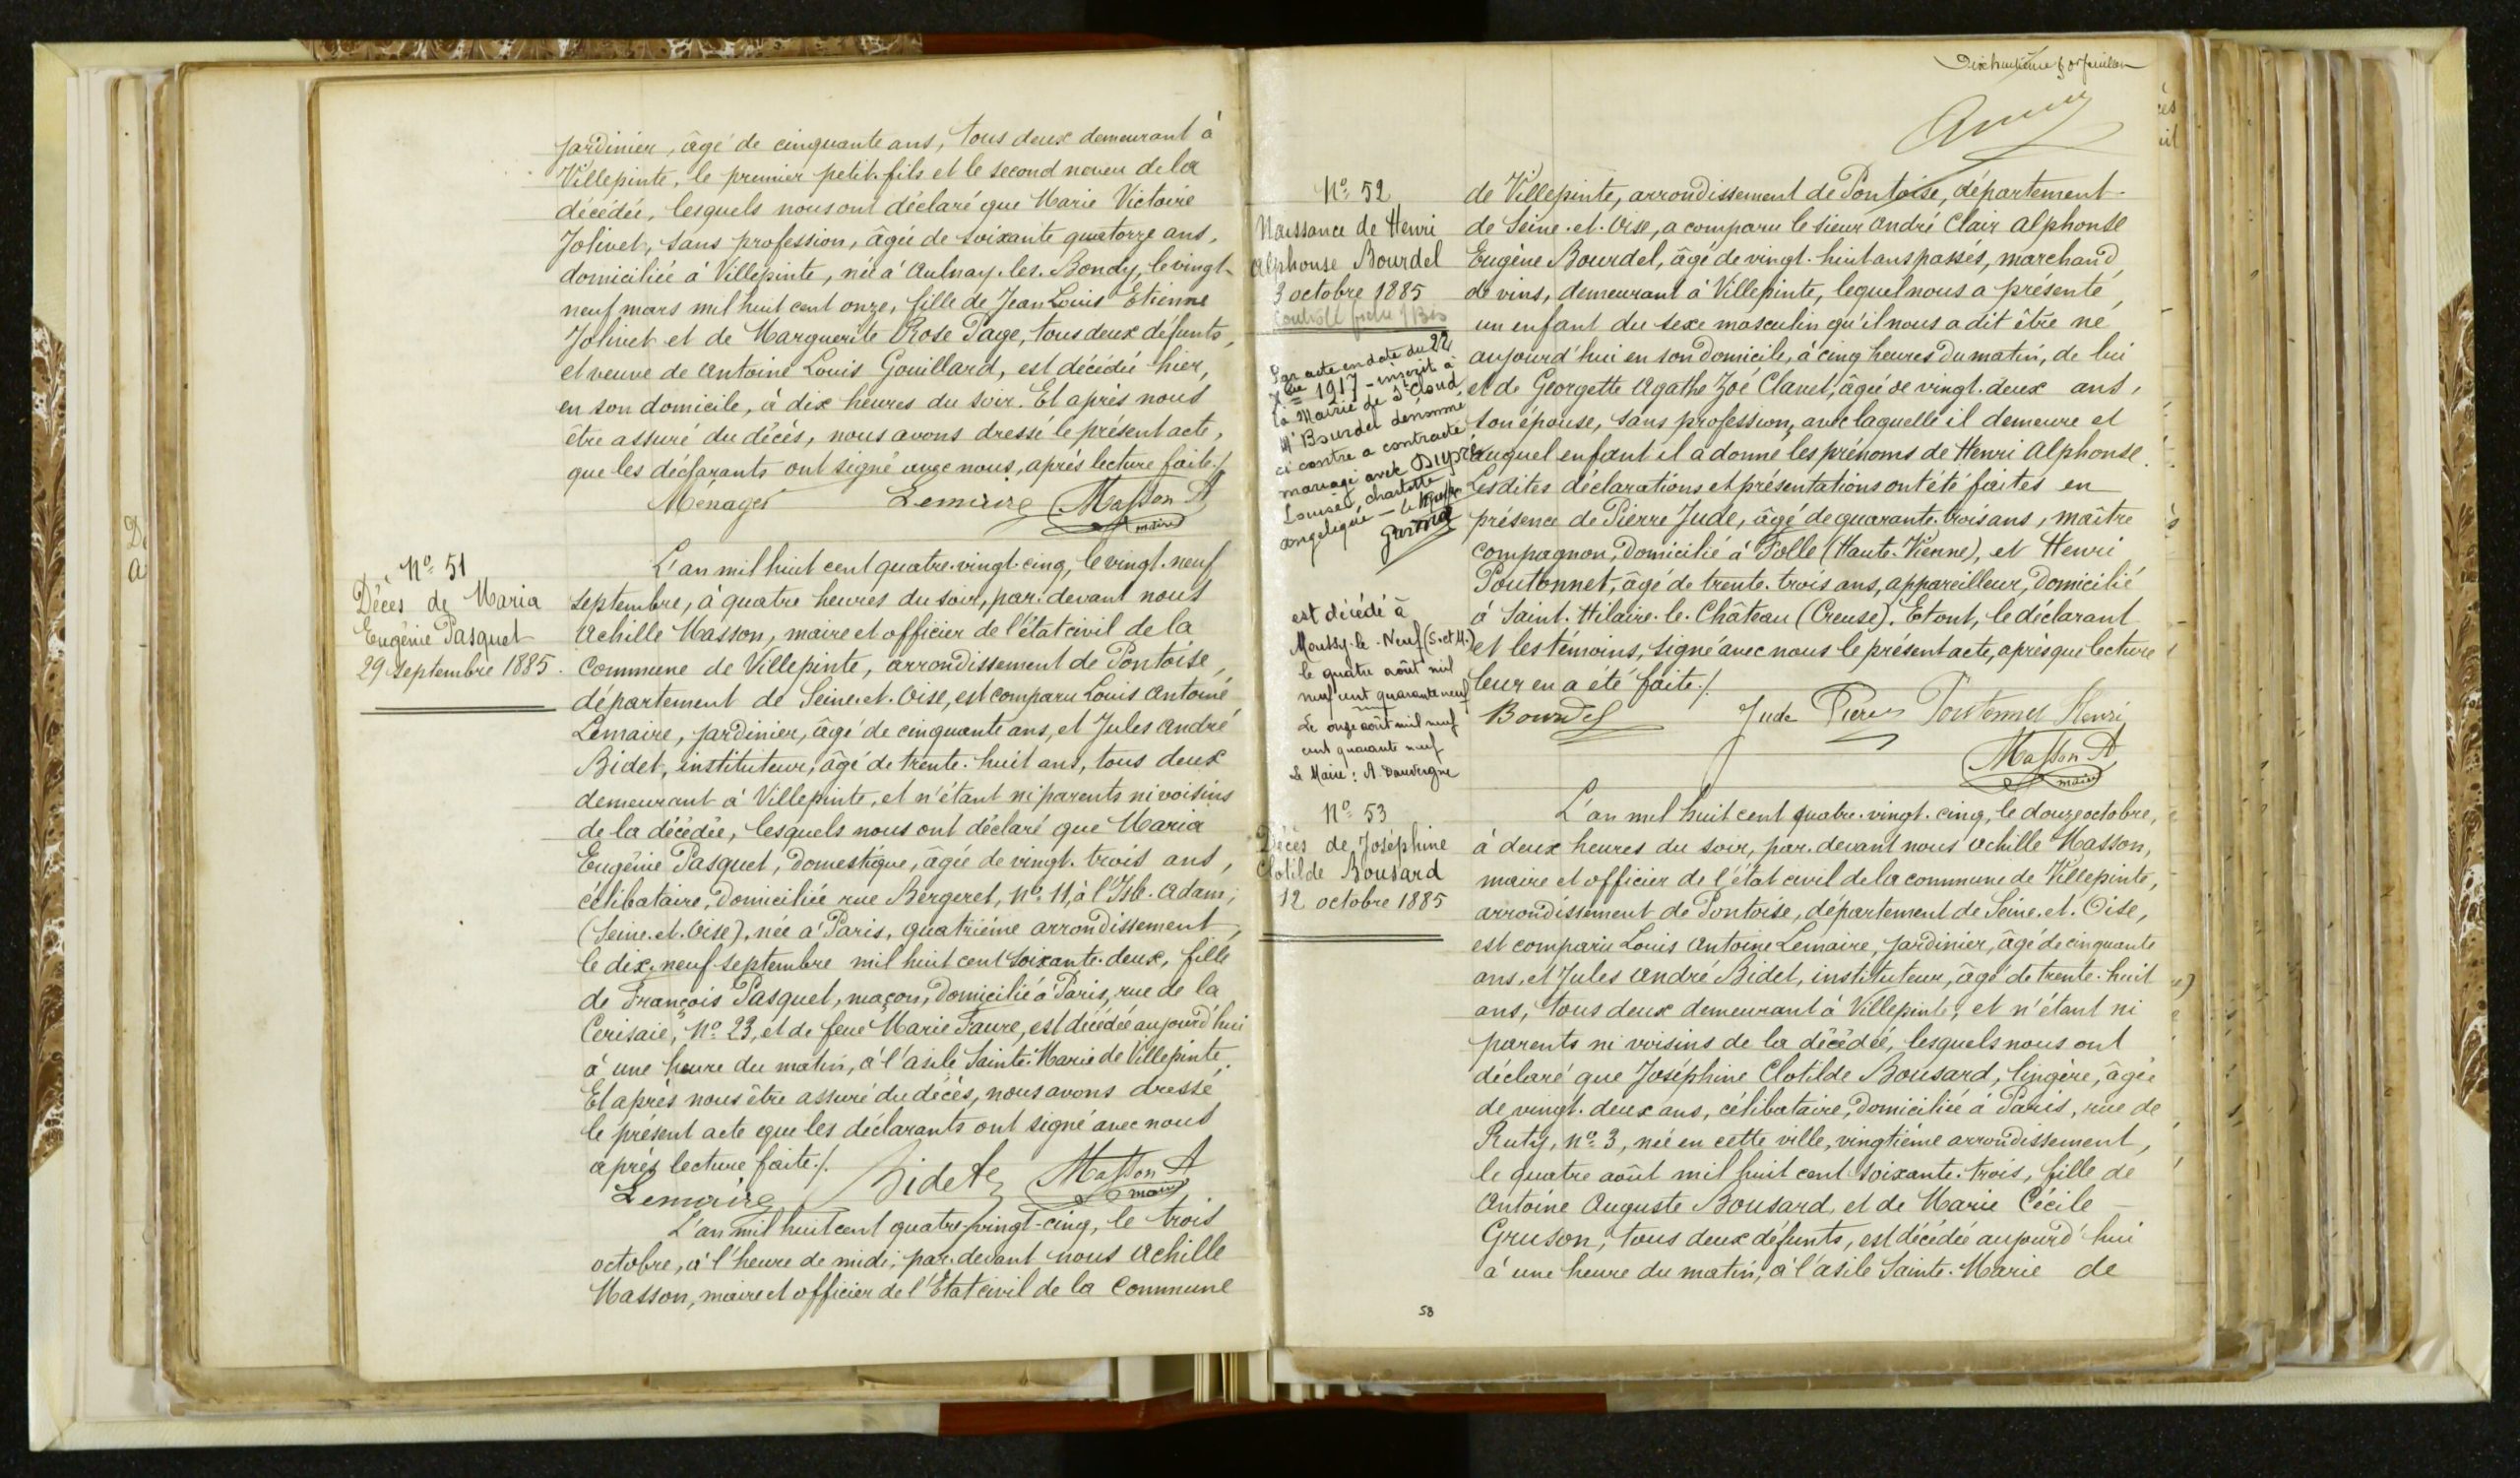 Jardinier, âgé de cinquante ans, tous deux demeurant à
Villepinte, le premier petit-fils et le second neveu de la
décédée, lesquels nous ont déclaré que Marie Victoire
Jolivet, sans profession, âgée de soixante quatorze ans,
domiciliée à Villepinte, née à Aulnay-les-Bondy, le vingt-
neuf mars mil huit cent onze, fille de Jean Louis Etienne
Jolivet et de Marguerite Rose Page, tous deux défunts,
et veuve de Antoine Louis Gouillard, est décédée hier,
en son domicile, à dix heures du soir. Et après nous
être assuré du décès, nous avons dressé le présent acte,
que les déclarants ont signé avec nous, après lecture faite./.
Ménager Lemaire Masson A
maire
N° 51
Décès de Maria
Eugénie Pasquet
29 septembre 1885.
L'an mil huit cent quatre-vingt-cinq, le vingt-neuf
septembre, à quatre heures du soir, par-devant nous
Achille Masson, maire et officier de l'état civil de la
Commune de Villepinte, arrondissement de Pontoise,
département de Seine-et-Oise, est comparu Louis Antoine
Lemaire, jardinier, âgé de cinquante ans, et Jules André
Bidet, instituteur, âgé de trente-huit ans, tous deux
demeurant à Villepinte, et n'étant ni parents ni voisins
de la décédée, lesquels nous ont déclaré que Maria
Eugénie Pasquet, domestique, âgée de vingt-trois ans,
célibataire, domiciliée rue Bergeret, n° 11, à l'Isle-Adam,
(Seine-et-Oise), née à Paris, quatrième arrondissement,
le dix-neuf septembre mil huit cent soixante-deux, fille
de François Pasquet, maçon, domicilié à Paris, rue de la
Cerisaie, N° 23, et de feue Marie Faure, est décédée aujourd'hui
à une heure du matin, à l'asile Sainte-Marie de Villepinte.
Et après nous être assuré du décès, nous avons dressé
le présent acte que les déclarants ont signé avec nous
après lecture faite./.
Lemaire Bidet Masson A
maire
L'an mil huit cent quatre-vingt-cinq, le trois
octobre, à l'heure de midi, par-devant nous Achille
Masson, maire et officier de l'Etat civil de la Commune
Dixhuitième
N° 52
Naissance de Henri
Alphonse Bourdel
3 octobre 1885
Par acte en date du 22
Xbre 1917 - inscrit à
la Mairie de St Cloud,
Mr Bourdel dénommé
ci contre a contracté
mariage avec Dupré
Louise, charlotte
angelique
est décédé à
Moussy-le-Neuf (S. et M.)
le quatre août mil
neuf cent quarante neuf
Le onze août mil neuf
cent quarante neuf
Le Maire : A. Dauvergne
de Villepinte, arrondissement de Pontoise, département
de Seine-et-Oise, a comparu le sieur André Clair Alphonse
Eugène Bourdel, âgé de vingt-huit ans passés, marchand
de vins, demeurant à Villepinte, lequel nous a présenté
un enfant du sexe masculin qu'il nous a dit être né
aujourd'hui en son domicile, à cinq heures du matin, de lui
et de Georgette Agathe Zoé Clanet, âgée de vingt-deux ans,
son épouse, sans profession, avec laquelle il demeure et
auquel enfant il a donné les prénoms de Henri Alphonse.
Lesdites déclarations et présentations ont été faites en
présence de Pierre Jude, âgé de quarante-trois ans, maître
compagnon, domicilié à Folle (Haute-Vienne), et Henri
Poutonnet, âgé de trente-trois ans, appareilleur, domicilié
à Saint-Hilaire-le-Château (Creuse). Et ont, le déclarant
et les témoins, signé avec nous le présent acte, après que lecture
leur en a été faite./.
Bourdel Jude Pierre Poutonnet Henri
Masson A
maire
N° 53
Décès de Joséphine
Clotilde Bousard
12 octobre 1885
L'an mil huit cent quatre-vingt-cinq, le douze octobre,
à deux heures du soir, par-devant nous Achille Masson,
maire et officier de l'état civil de la commune de Villepinte,
arrondissement de Pontoise, département de Seine-et-Oise,
est comparu Louis Antoine Lemaire, jardinier, âgé de cinquante
ans, et Jules André Bidet, instituteur, âgé de trente-huit
ans, tous deux demeurant à Villepinte, et n'étant ni
parents ni voisins de la décédée, lesquels nous ont
déclaré que Joséphine Clotilde Bousard, lingère, âgée
de vingt-deux ans, célibataire, domiciliée à Paris, rue de
Ruty, n° 3, née en cette ville, vingtième arrondissement,
le quatre août mil huit cent soixante-trois, fille de
Antoine Auguste Bousard, et de Marie Cécile
Gruson, tous deux défunts, est décédée aujourd'hui
à une heure du matin, à l'asile Sainte-Marie de
58